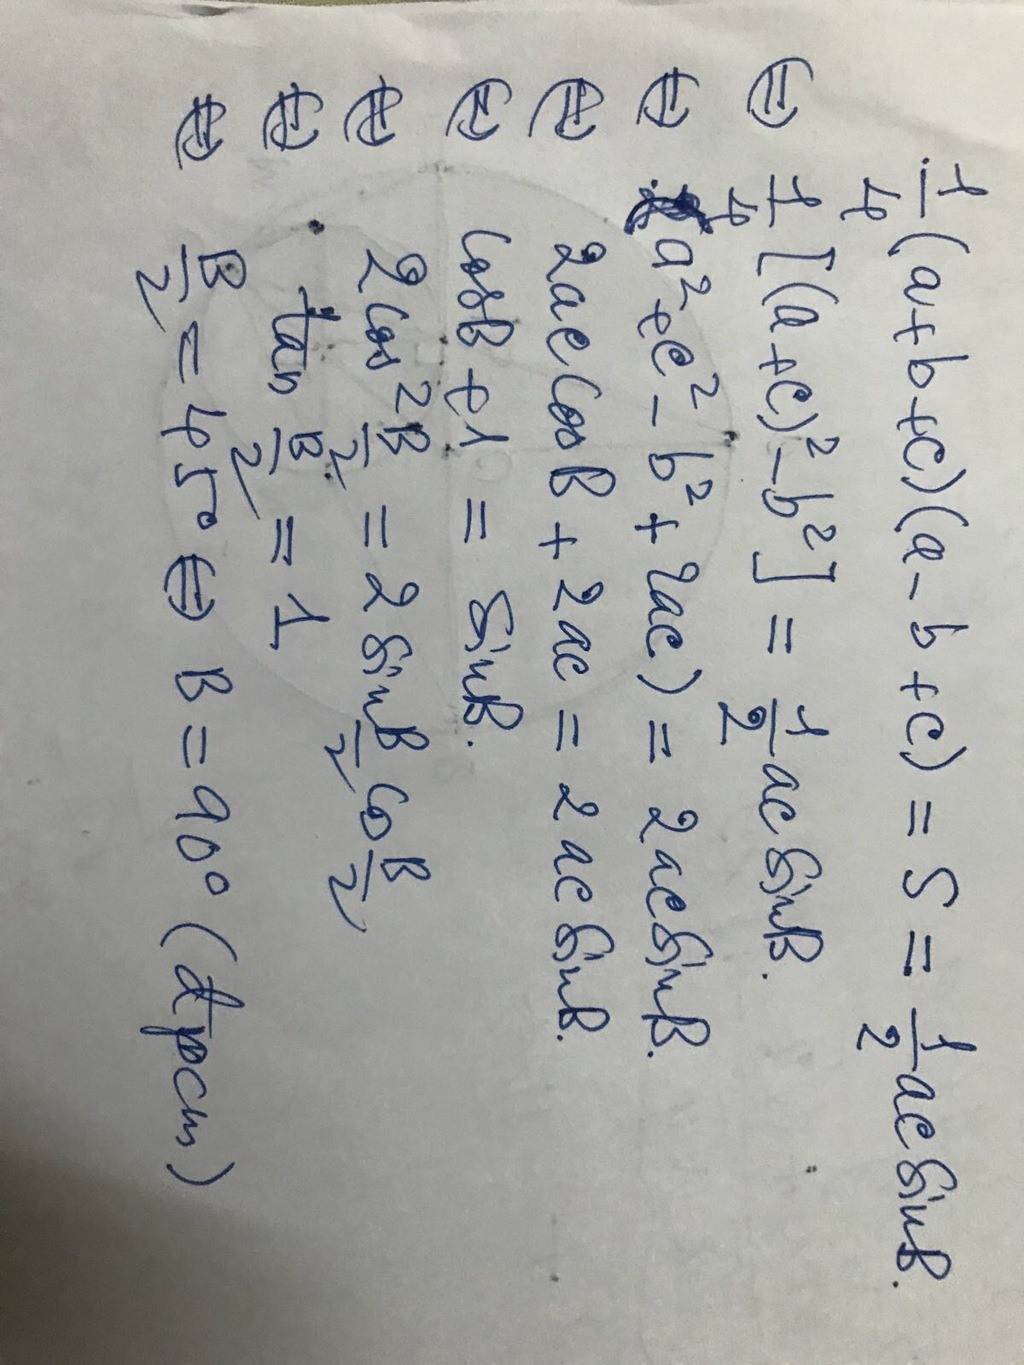 1/4 (a+b+c)(a-b+c) = S = 1/2 ac sinB.
⇔ 1/4 [(a+c)² - b²] = 1/2 ac sinB.
⇔ a² + c² - b² + 2ac) = 2ac sinB.
⇔ 2ac cosB + 2ac = 2ac sinB.
⇔ cosB + 1 = sinB.
⇔ 2cos² B/2 = 2 sin B/2 cos B/2
⇔ tan B/2 = 1
⇔ B/2 = 45° ⇔ B = 90° (đpcm)